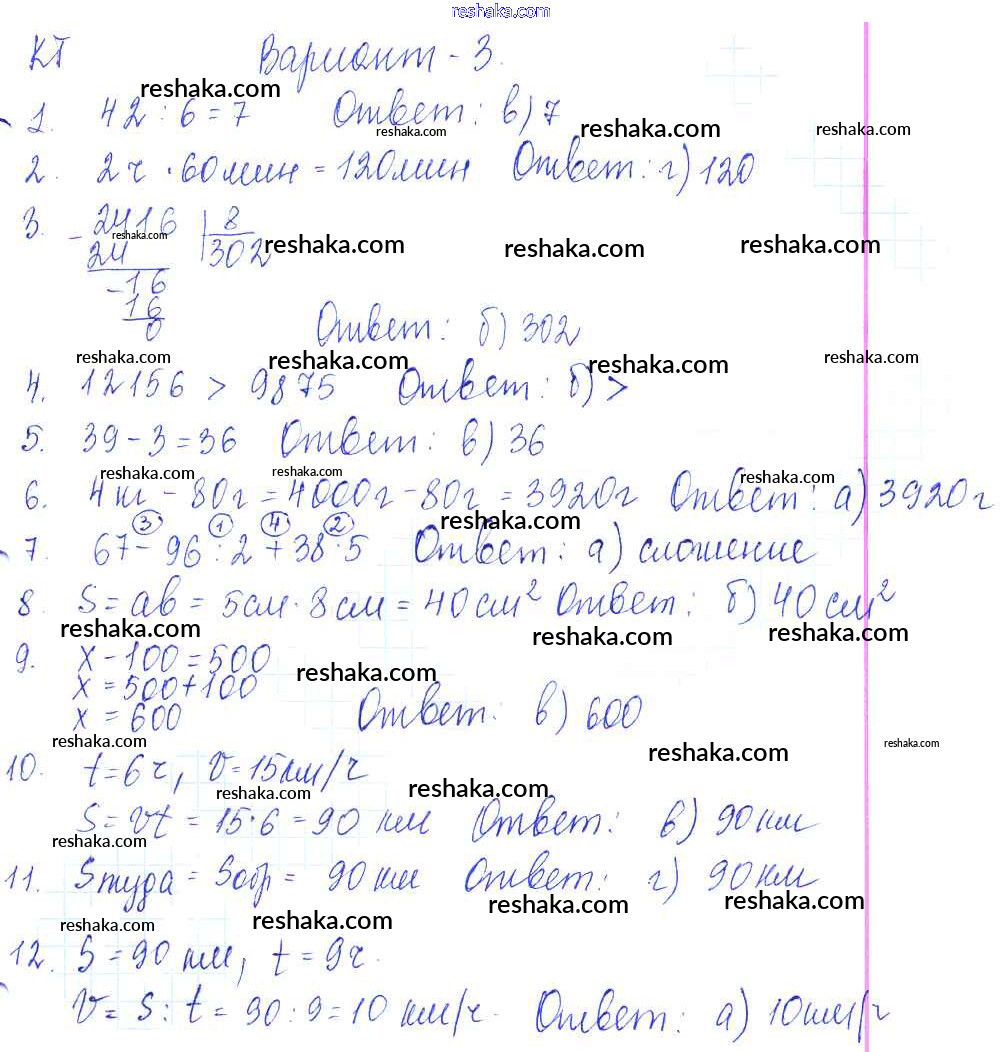 reshaka.com
КТ Вариант - 3.
reshaka.com
1. 42 : 6 = 7 Ответ: в) 7
reshaka.com reshaka.com reshaka.com
2. 2ч · 60мин = 120мин Ответ: г) 120
3. - 2416 | 8
reshaka.com
24 302
reshaka.com reshaka.com reshaka.com
- 16
16
0 Ответ: б) 302
reshaka.com reshaka.com reshaka.com reshaka.com
4. 12156 > 9875 Ответ: б) >
5. 39 - 3 = 36 Ответ: в) 36
reshaka.com reshaka.com reshaka.com
6. 4кг - 80г = 4000г - 80г = 3920г Ответ: а) 3920г
3 1 4 2 reshaka.com
7. 67 - 96 : 2 + 38 · 5 Ответ: а) сложение
8 S = ab = 5см · 8см = 40см² Ответ: б) 40см²
reshaka.com reshaka.com reshaka.com
9. x - 100 = 500
reshaka.com
x = 500 + 100
x = 600 Ответ: в) 600
reshaka.com reshaka.com reshaka.com
10. t = 6ч, v = 15км/ч
reshaka.com reshaka.com
S = vt = 15 · 6 = 90 км Ответ: в) 90км
reshaka.com
11. Sтуда = Sобр = 90км Ответ: г) 90км
reshaka.com reshaka.com reshaka.com reshaka.com
12. S = 90 км, t = 9ч.
v = S : t = 90 : 9 = 10 км/ч. Ответ: а) 10км/ч